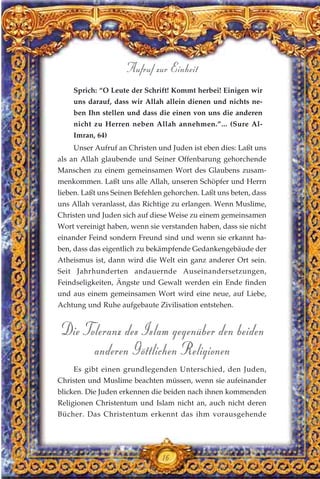 Aufruf zur Einheit
Sprich: "O Leute der Schrift! Kommt herbei! Einigen wir
uns darauf, dass wir Allah allein dienen und nichts ne-
ben Ihn stellen und dass die einen von uns die anderen
nicht zu Herren neben Allah annehmen."... (Sure Al-
Imran, 64)
Unser Aufruf an Christen und Juden ist eben dies: Laßt uns
als an Allah glaubende und Seiner Offenbarung gehorchende
Menschen zu einem gemeinsamen Wort des Glaubens zusam-
menkommen. Laßt uns alle Allah, unseren Schöpfer und Herrn
lieben. Laßt uns Seinen Befehlen gehorchen. Laßt uns beten, dass
uns Allah veranlasst, das Richtige zu erlangen. Wenn Muslime,
Christen und Juden sich auf diese Weise zu einem gemeinsamen
Wort vereinigt haben, wenn sie verstanden haben, dass sie nicht
einander Feind sondern Freund sind und wenn sie erkannt ha-
ben, dass das eigentlich zu bekämpfende Gedankengebäude der
Atheismus ist, dann wird die Welt ein ganz anderer Ort sein.
Seit Jahrhunderten andauernde Auseinandersetzungen,
Feindseligkeiten, Ängste und Gewalt werden ein Ende finden
und aus einem gemeinsamen Wort wird eine neue, auf Liebe,
Achtung und Ruhe aufgebaute Zivilisation entstehen.
Die Toleranz des Islam gegenüber den beiden
anderen Göttlichen Religionen
Es gibt einen grundlegenden Unterschied, den Juden,
Christen und Muslime beachten müssen, wenn sie aufeinander
blicken. Die Juden erkennen die beiden nach ihnen kommenden
Religionen Christentum und Islam nicht an, auch nicht deren
Bücher. Das Christentum erkennt das ihm vorausgehende
16